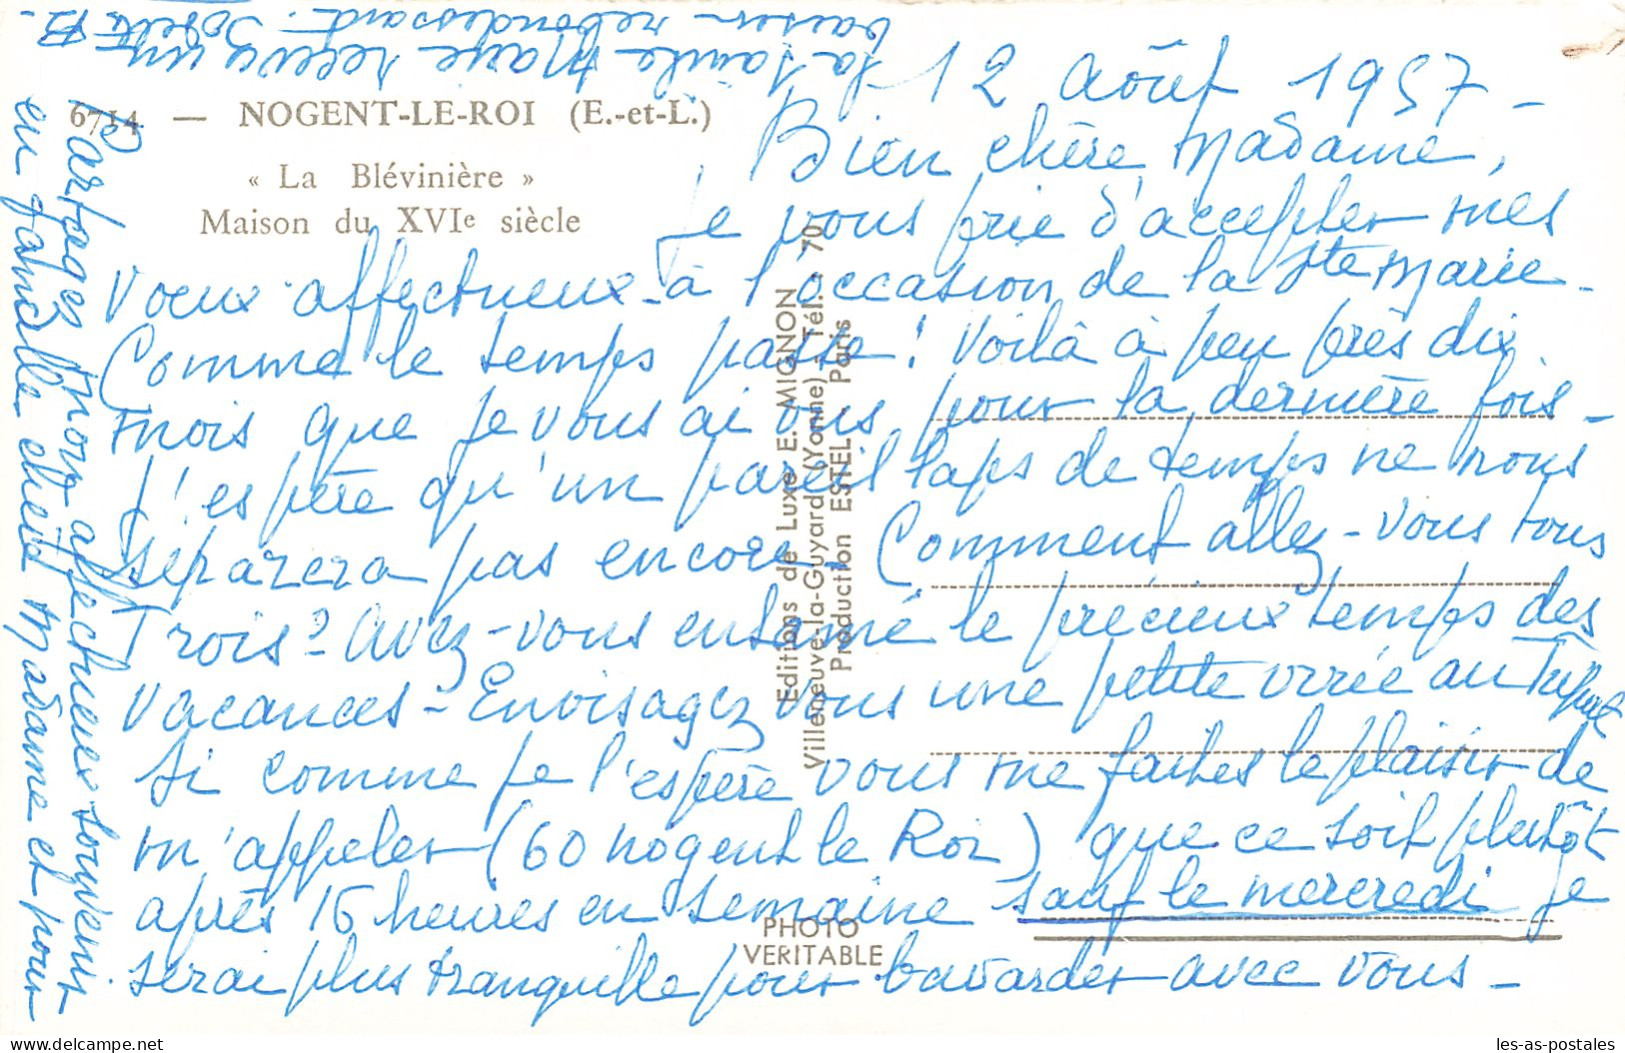 6714. — NOGENT-LE-ROI (E.-et-L.)
« La Blévinière »
Maison du XVIe siècle
12 Août 1957 -
Bien chère Madame,
je vous prie d'accepter mes
voeux affectueux à l'occasion de la Ste Marie -
Comme le temps passe ! Voilà à peu près dix
mois que je vous ai vus pour la dernière fois -
J'espère qu'un pareil laps de temps ne nous
séparera pas encore, Comment allez-vous tous
Trois ? Avez-vous entamé le précieux temps des
vacances - Envisagez vous une petite virée au
Si comme je l'espère vous me faites le plaisir de
m'appeler (60 nogent le Roi) que ce soit plutôt
après 16 heures en semaine sauf le mercredi je
serai plus tranquille pour bavarder avec vous -
Partagez mon affectueux souvenir
en famille chère Madame et pour
la Sainte Marie recevez un
baiser rebondissant.
Editions de Luxe E. MIGNON
Villeneuve-la-Guyard (Yonne) - Tél. 70
Production ESTEL Paris
PHOTO
VERITABLE
delcampe.net
les-as-postales